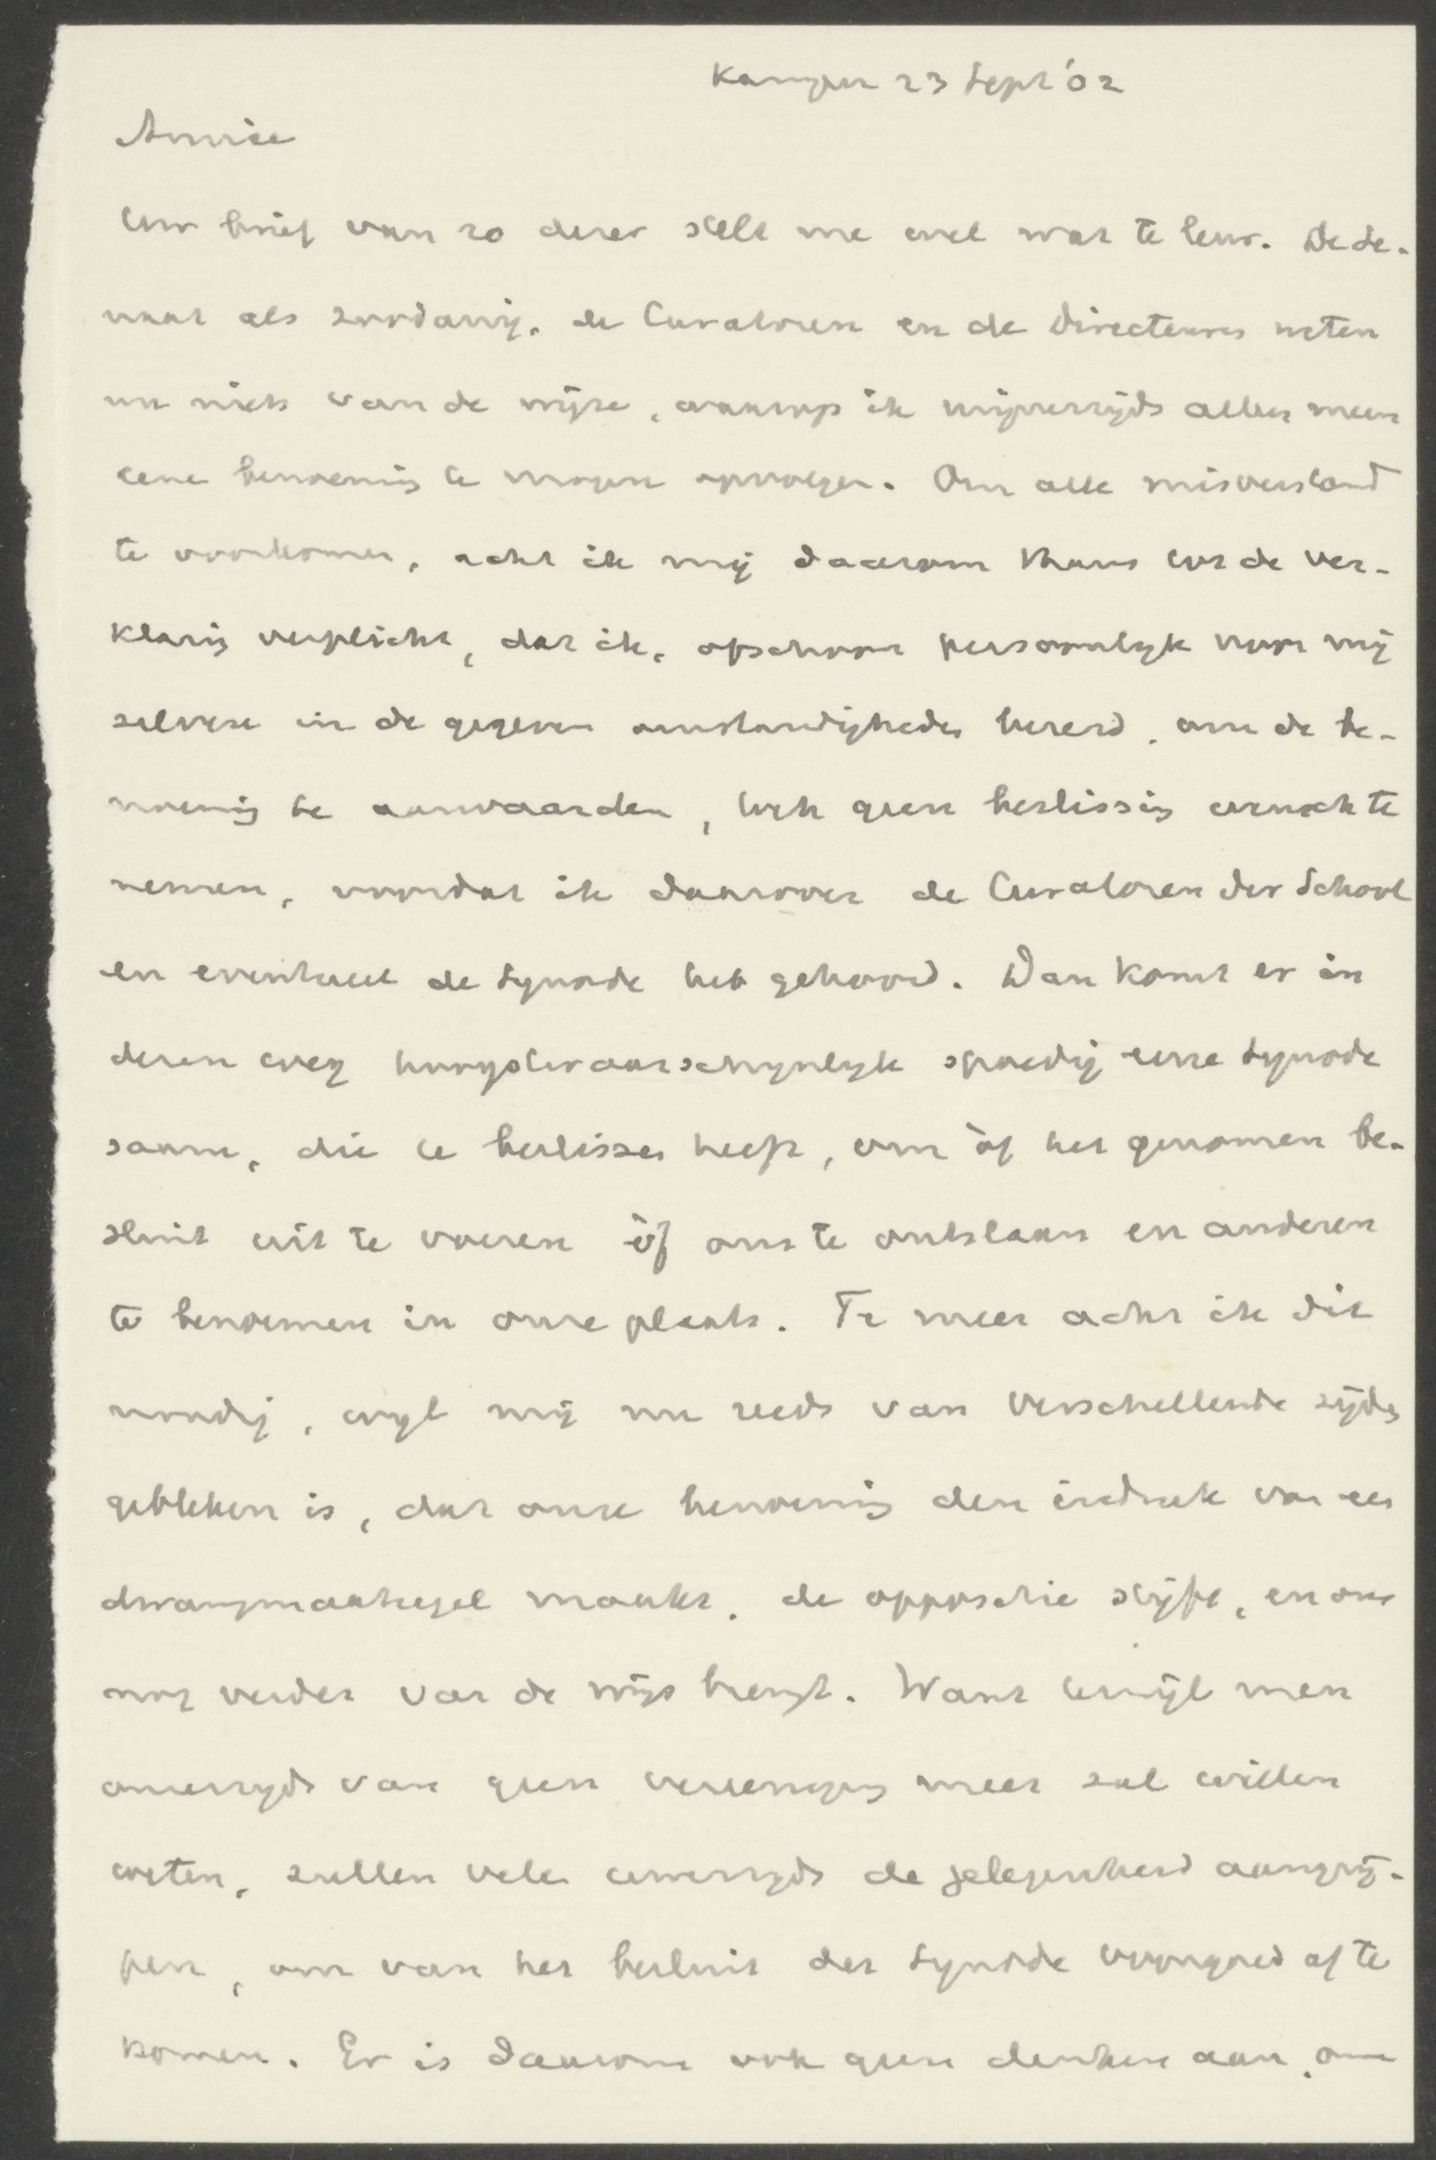 Kampen 23 Sept '02
Amice
Uw brief van 20 dezer stelt me wel wat te leur. De Se-
naat als zoodanig, de Curatoren en de Directeuren weten
nu niets van de wijze, waarop ik mijnerzijds alleen meen
eene benoeming te mogen opvolgen. Om alle misverstand
te voorkomen, acht ik mij daarom thans tot de ver-
klaring verplicht, dat ik, ofschoon persoonlijk voor mij
zelven in de gegeven omstandigheden bereid, om de be-
noeming te aanvaarden, toch geen beslissing wensch te
nemen, voordat ik daarover de Curatoren der School
en eventueel de Synode heb gehoord. Dan komt er in
dezen weg hoogstwaarschijnlijk spoedig eene Synode
saam, die te beslissen heeft, om òf het genomen be-
sluit uit te voeren òf ons te ontslaan en anderen
te benoemen in onze plaats. Te meer acht ik dit
noodig, wijl mij nu reeds van verschillende zijden
gebleken is, dat onze benoeming den indruk van een
dwangmaatregel maakt, de oppositie stijft, en ons
nog verder van de wijs brengt. Want terwijl men
onzerzijds van geen vereeniging meer zal willen
weten, zullen velen uwerzijds de gelegenheid aangrij-
pen, om van het besluit der Synode voorgoed af te
komen. Er is daarom ook geen denken aan, om